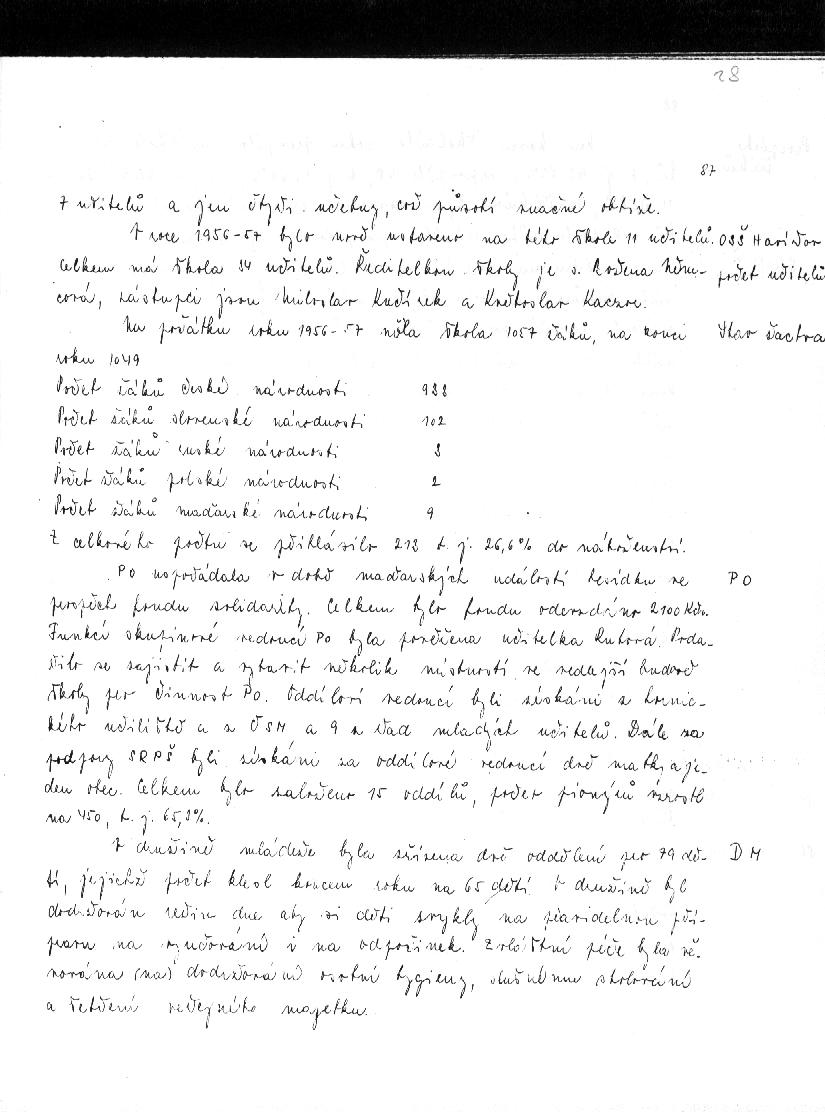 28
87
7 učitelů a jen čtyři učebny, což působí značné obtíže.
V roce 1956-57 bylo nově ustaveno na této škole 11 učitelů. OSŠ Havířov
Celkem má škola 34 učitelů. Ředitelkou školy je s. Božena Něm- počet učitelů
cová, zástupci jsou Miloslav Kučírek a Květoslav Kaczor.
Na počátku roku 1956-57 měla škola 1057 žáků, na konci Stav žactva
roku 1049
Počet žáků české národnosti 933
Počet žáků slovenské národnosti 102
Počet žáků ruské národnosti 3
Počet žáků polské národnosti 2
Počet žáků maďarské národnosti 9
Z celkového počtu se přihlásilo 213 t. j. 26,6% do náboženství.
PO uspořádala v době maďarských událostí besídku ve PO
prospěch fondu solidarity. Celkem bylo fondu odevzdáno 2100 Kčs.
Funkcí skupinové vedoucí PO byla pověřena učitelka Kutová. Poda-
řilo se zajistit a vybavit několik místností ve vedlejší budově
školy pro činnost PO. Oddíloví vedoucí byli získáni z hornic-
kého učiliště a z ČSM a 9 z řad mladých učitelů. Dále za
podpory SRPŠ byli získáni za oddílové vedoucí dvě matky a je-
den otec. Celkem bylo založeno 15 oddílů, počet pionýrů vzrostl
na 450, t. j. 65,3%.
V družině mládeže byla zřízena dvě oddělení pro 79 dě- DM
tí, jejichž počet klesl koncem roku na 65 dětí. V družině byl
dodržován režim dne aby si děti zvykly na pravidelnou pří-
pravu na vyučování i na odpočinek. Zvláštní péče byla vě-
nována (na) dodržování osobní hygieny, slušnému stolování
a šetření veřejného majetku.